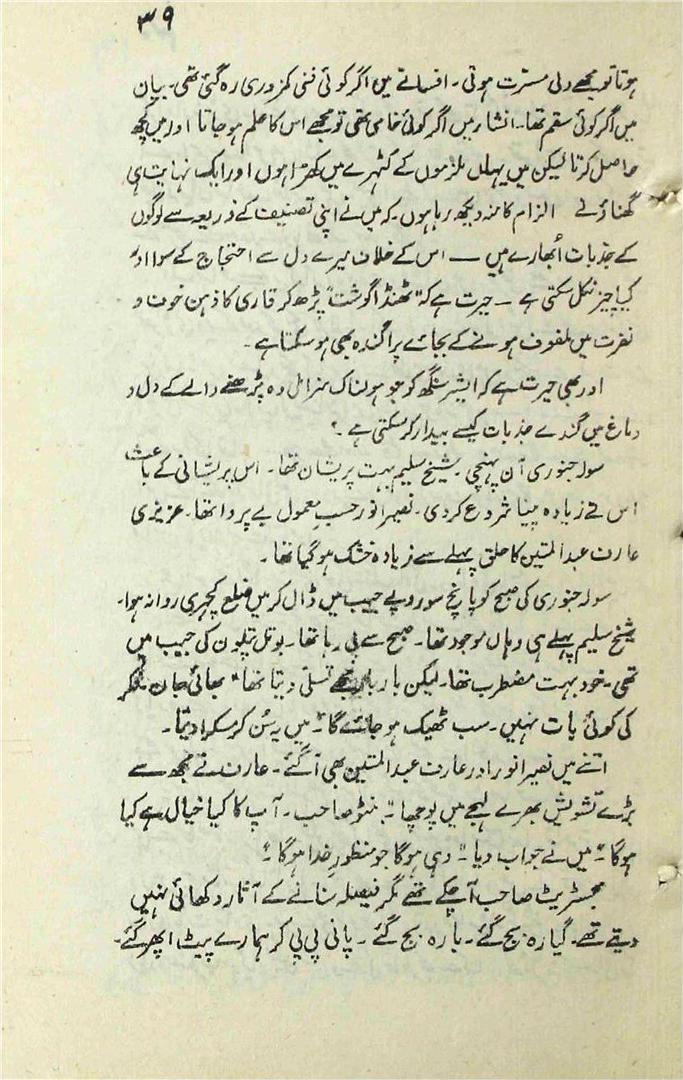 ۳۹
ہوتا تو مجھے دلی مسترت ہوتی۔ افسانے میں اگر کوئی فنی کمزوری رہ گئی تھی۔ بیان
میں اگر کوئی سقم تھا۔ انشار میں اگر کوئی خامی تھی تو مجھے اس کا علم ہو جاتا اور میں کچھ
حاصل کرتا لیکن میں یہاں ملزموں کے کٹہرے میں کھڑا ہوں اور ایک نہایت ہی
گھناؤنے الزام کا منہ دیکھ رہا ہوں۔ کہ میں نے اپنی تصنیف کے ذریعہ سے لوگوں
کے جذبات اُبھارے ہیں — اس کے خلاف میرے دل سے احتجاج کے سوا اور
کیا چیز نکل سکتی ہے — حیرت ہے کہ "ٹھنڈا گوشت" پڑھ کر قاری کا ذہن خوف و
نفرت میں ملفوف ہونے کے بجائے پراگندہ بھی ہو سکتا ہے۔
اور بھی حیرت ہے کہ ایشر سنگھ کو جو ہولناک سزا ملی وہ پڑھنے والے کے دل و
دماغ میں گندے جذبات کیسے بیدار کر سکتی ہے۔؟
سولہ جنوری آن پہنچی۔ شیخ سلیم بہت پریشان تھا۔ اس پریشانی کے باعث
اس نے زیادہ پینا شروع کر دی۔ نصیر انور حسبِ معمول بے پروا تھا۔ عزیزی
عارف عبدالمتین کا حلق پہلے سے زیادہ خشک ہو گیا تھا۔
سولہ جنوری کی صبح کو پانچ سو روپے جیب میں ڈال کر میں ضلع کچہری روانہ ہوا۔
شیخ سلیم پہلے ہی وہاں موجود تھا۔ صبح سے پی رہا تھا۔ بوتل پتلون کی جیب میں
تھی۔ خود بہت مضطرب تھا۔ لیکن بار بار مجھے تسلی دیتا تھا "بھائی جان۔ فکر
کی کوئی بات نہیں۔ سب ٹھیک ہو جائے گا"۔ میں یہ سُن کر مسکرا دیتا۔
اتنے میں نصیر انور اور عارف عبدالمتین بھی آ گئے۔ عارف نے مجھ سے
بڑے تشویش بھرے لہجے میں پوچھا "منٹو صاحب۔ آپ کا کیا خیال ہے کیا
ہوگا"۔ میں نے جواب دیا "وہی ہوگا جو منظورِ خدا ہوگا"؛
مجسٹریٹ صاحب آ چکے تھے مگر فیصلہ سنانے کے آثار دکھائی نہیں
دیتے تھے۔ گیارہ بج گئے۔ بارہ بج گئے۔ پانی پی پی کر ہمارے پیٹ اپھر گئے۔